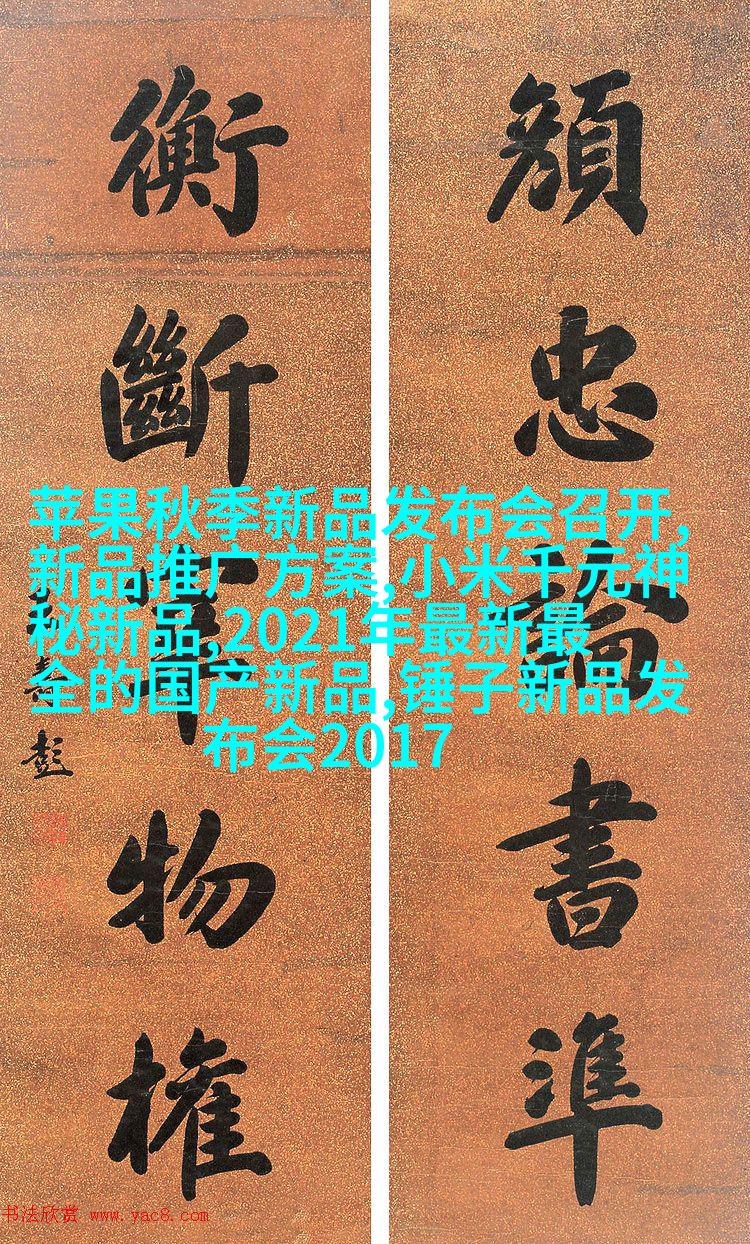 顔忠論書準
衡斷軍物權
壽彭
苹果秋季新品发布会召开,
新品推广方案,小米千元神
秘新品,2021年最新最
全的国产新品,锤子新品发
布会2017
书法欣赏 www.yac8.com